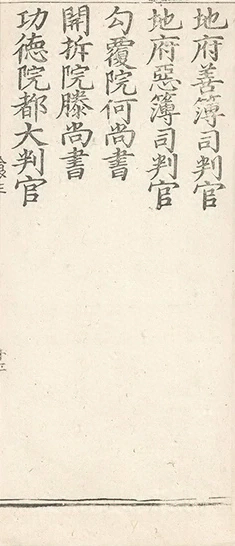 地府善簿司判官
地府惡簿司判官
勾覆院何尚書
開拆院滕尚書
功德院都大判官